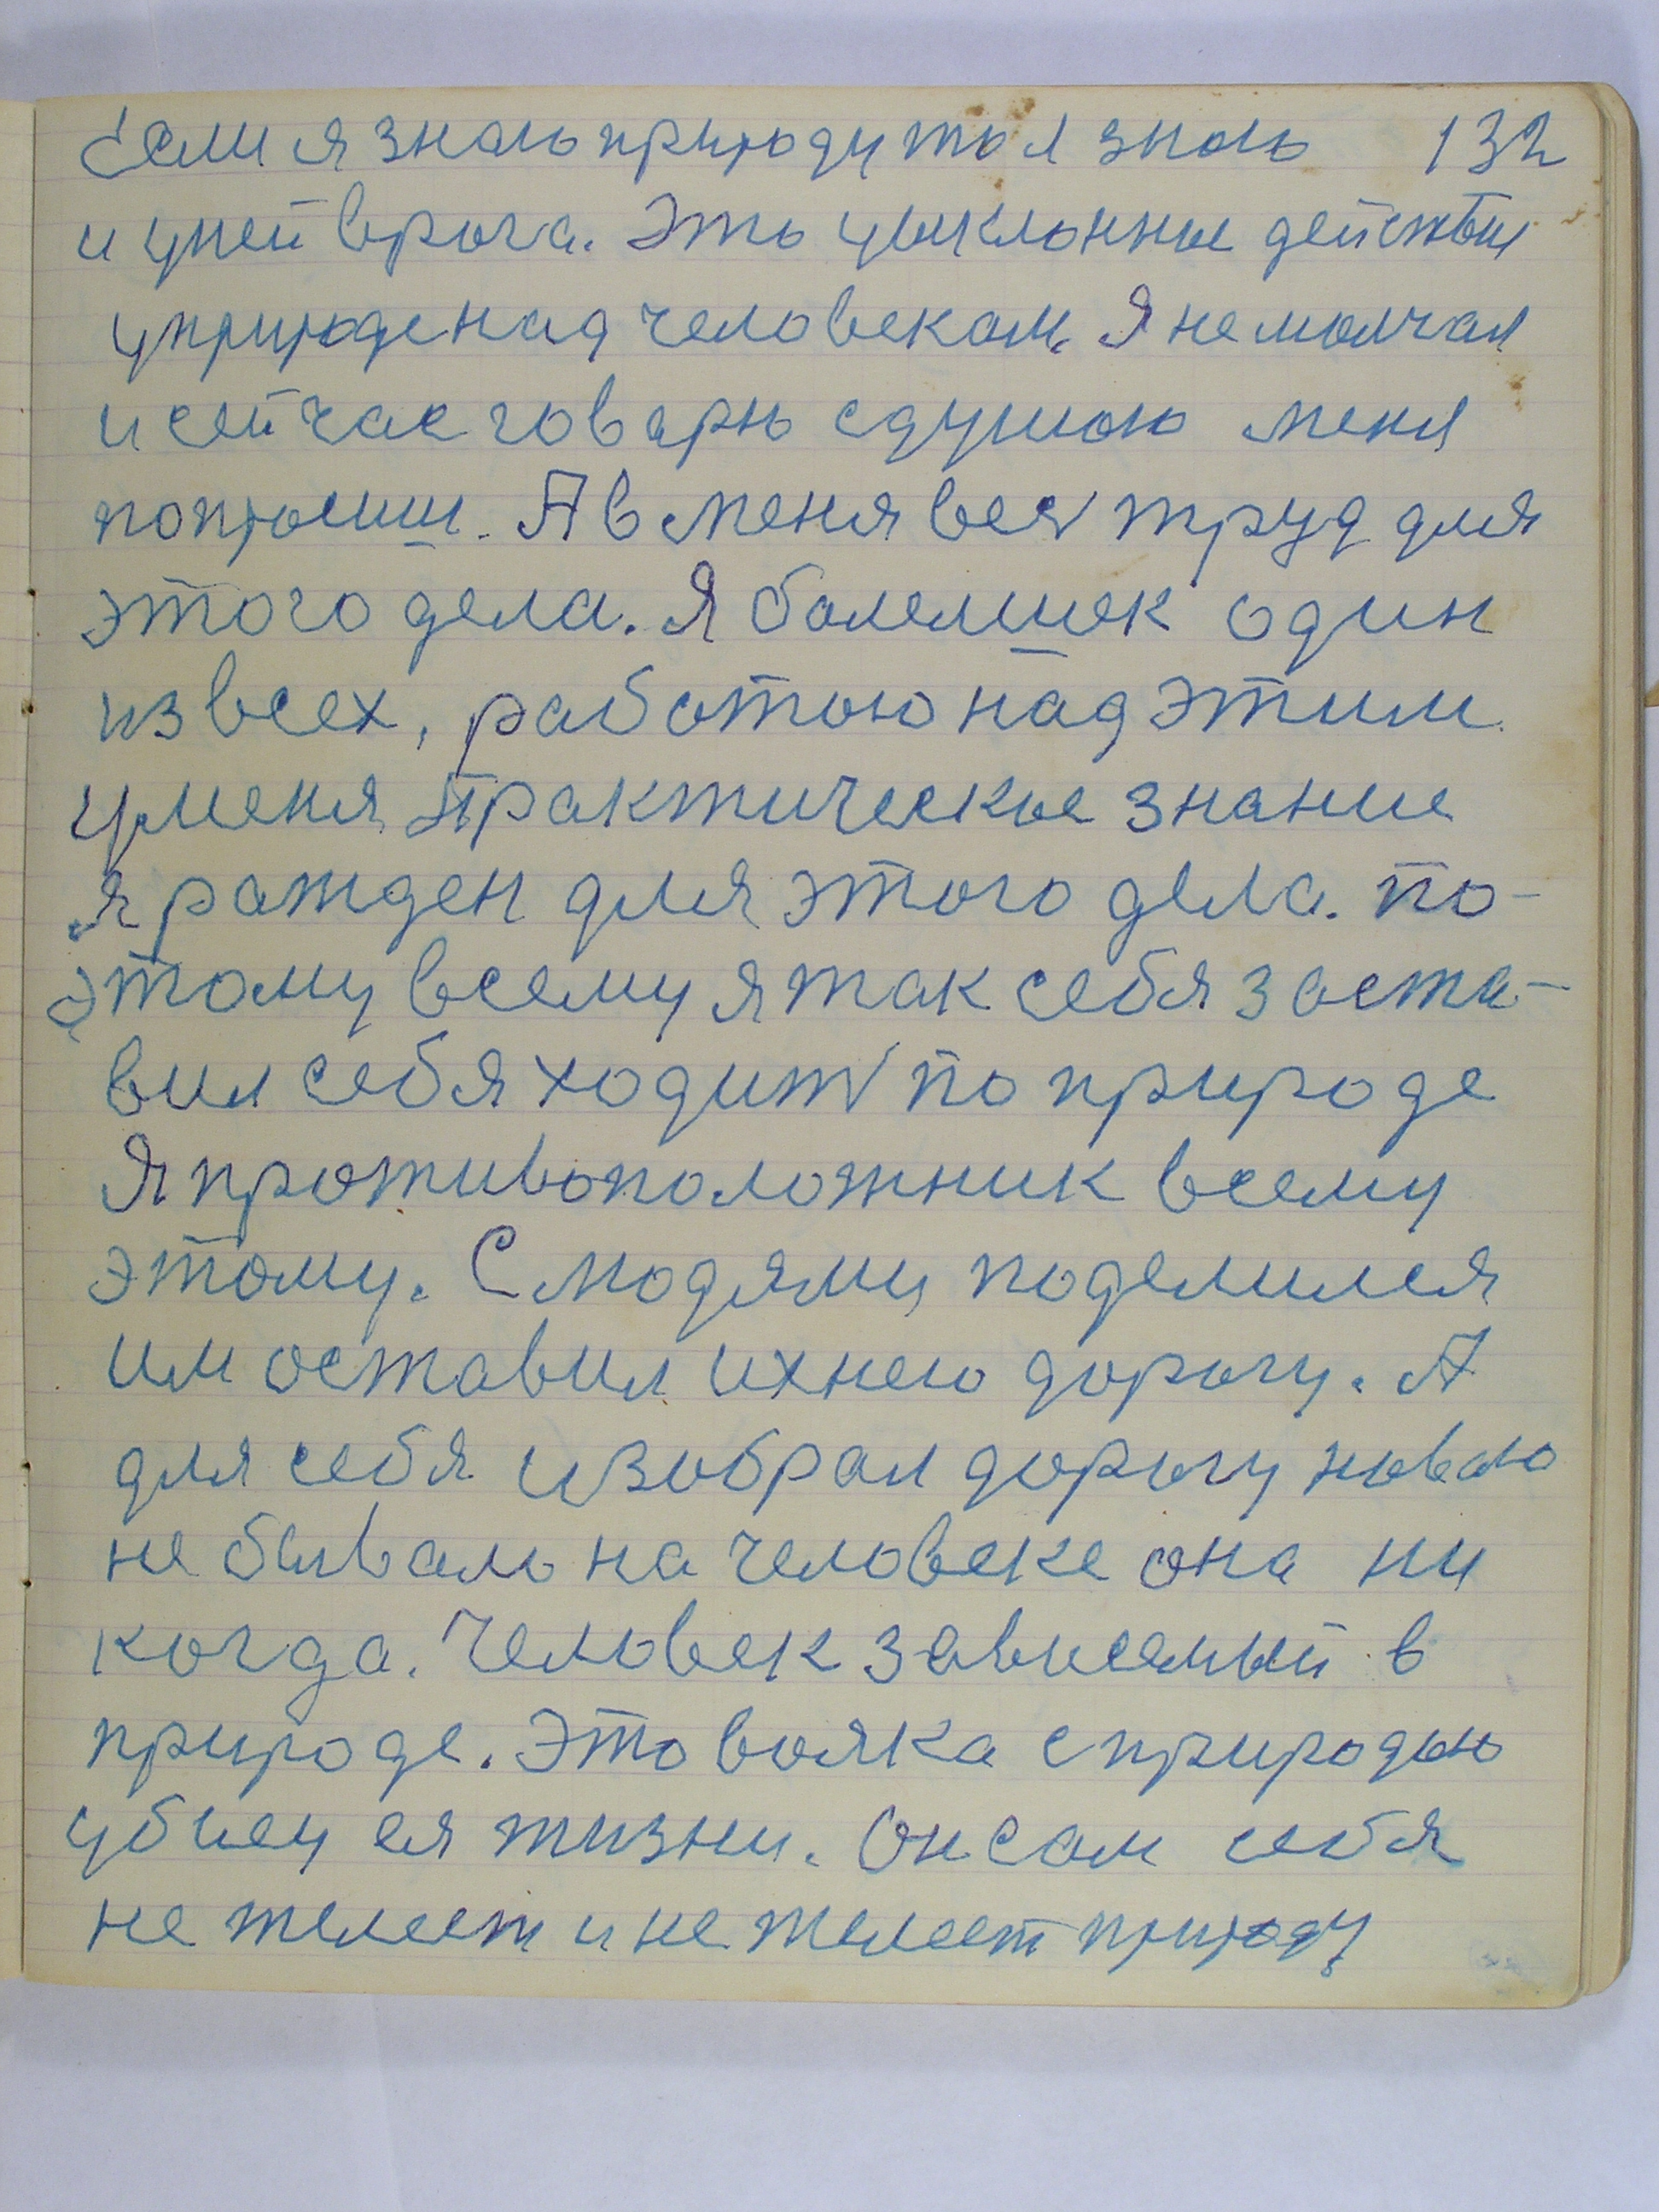 Если я знаю природу то я знаю 132
и у ней врага. Это циклонные действия
у природе над человекам. Я не молчал
и сейчас говарю с душою меня
попроси. А в меня весь труд для
этого дела. Я болельшек один
из всех, работою над этим
у меня практическое знание
я ражден для этого дела. по-
этому всему я так себя заста-
вил себя ходить по природе
Я противоположник всему
этому. С людями поделился
им оставил ихнею дорогу. А
для себя изобрал дорогу новаю
не бывало на человеке она ни
когда. Человек зависемый в
природе. Это вояка с природою
убиец ея жизни. Он сам себя
не желеет и не желеет природу